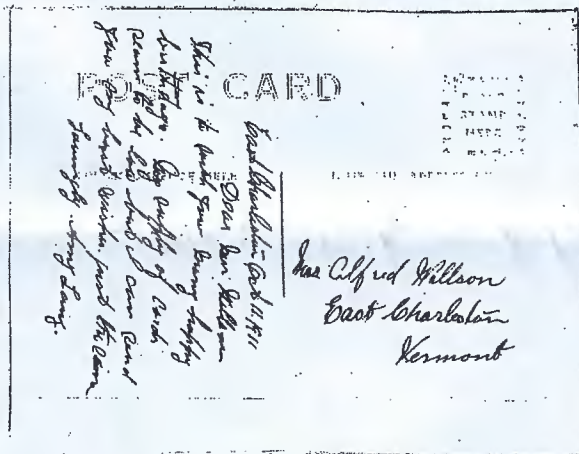 POST CARD
PLACE
STAMP
HERE
East Charleston Oct 11, 1911
Dear Mrs. Willson
This is to wish you many happy
birthdays. Our supply of cards
seem to be low but I can send
you my best wishes just the same
Lovingly Amy Lang.
Mrs Alfred Willson
East Charleston
Vermont